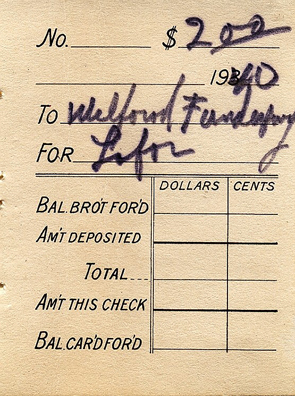 No. $ 200
1940
To Welford
FOR Lafor
DOLLARS CENTS
BAL. BRO'T FOR'D
AM'T DEPOSITED
TOTAL
AM'T THIS CHECK
BAL. CAR'D FOR'D